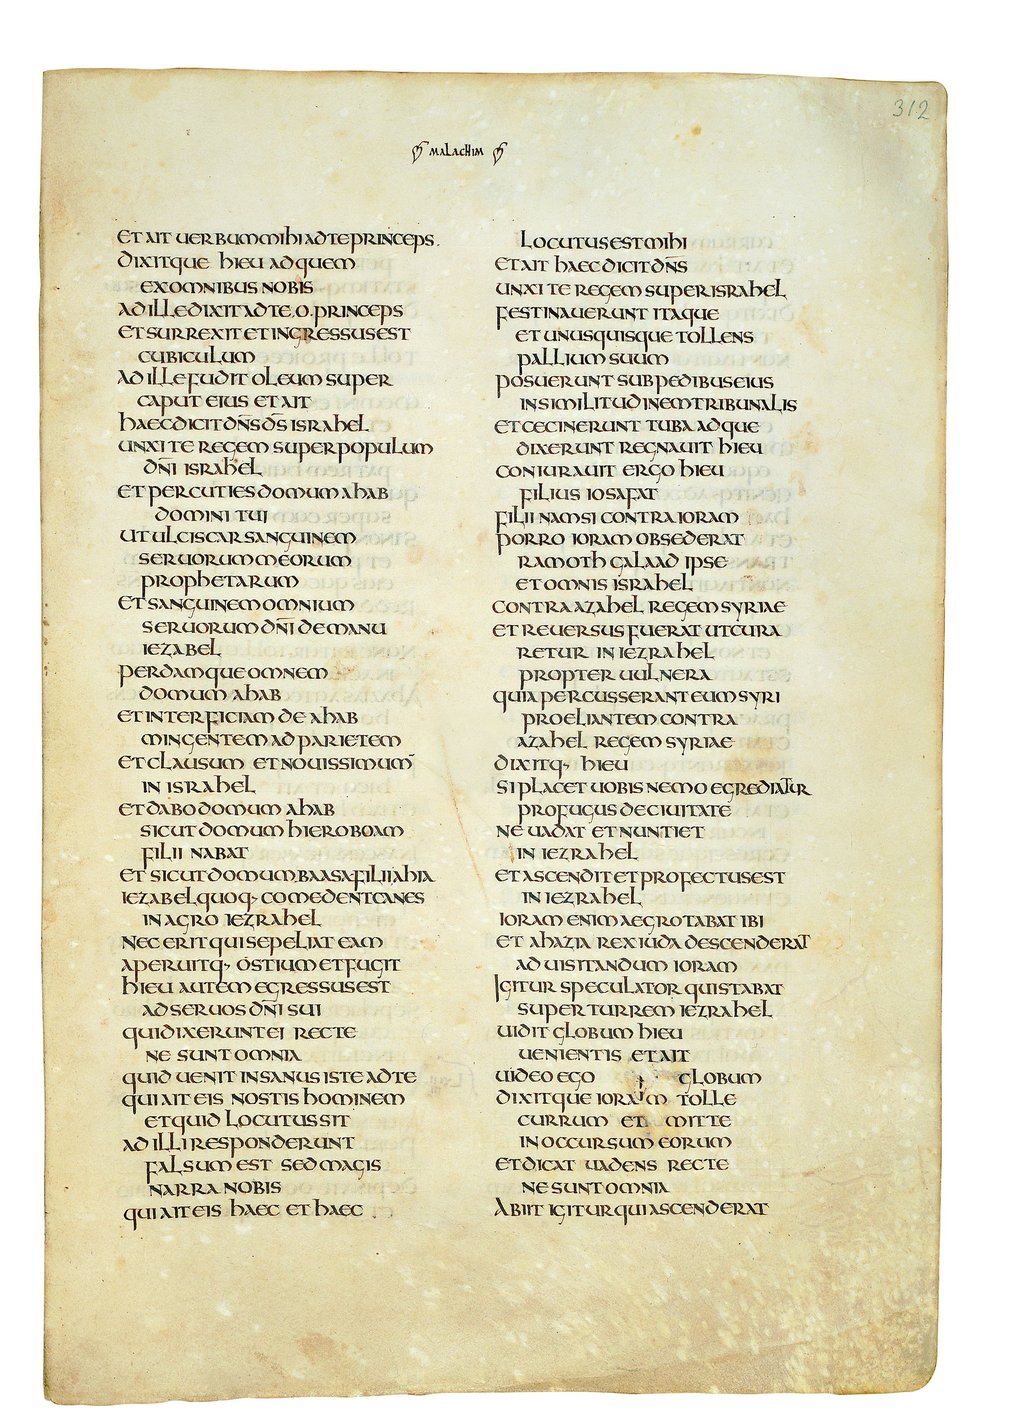 312
MALACHIM
ET AIT UERBUM MIHI AD TE PRINCEPS.
DIXITQUE HIEU AD QUEM
EX OMNIBUS NOBIS
AD ILLE DIXIT AD TE. O. PRINCEPS
ET SURREXIT ET INGRESSUS EST
CUBICULUM
AD ILLE FUDIT OLEUM SUPER
CAPUT EIUS ET AIT
HAEC DICIT DN̄S D̄S ISRAHEL
UNXI TE REGEM SUPER POPULUM
DN̄I ISRAHEL
ET PERCUTIES DOMUM AHAB
DOMINI TUI
UT ULCISCAR SANGUINEM
SERUORUM MEORUM
PROPHETARUM
ET SANGUINEM OMNIUM
SERUORUM DN̄I DE MANU
IEZABEL
PERDAMQUE OMNEM
DOMUM AHAB
ET INTERFICIAM DE AHAB
MINGENTEM AD PARIETEM
ET CLAUSUM ET NOUISSIMUM
IN ISRAHEL
ET DABO DOMUM AHAB
SICUT DOMUM HIEROBOAM
FILII NABAT
ET SICUT DOMUM BAASA FILII AHIA
IEZABEL QUOQ· COMEDENT CANES
IN AGRO IEZRAHEL
NEC ERIT QUI SEPELIAT EAM
APERUITQ· OSTIUM ET FUGIT
HIEU AUTEM EGRESSUS EST
AD SERUOS DN̄I SUI
QUI DIXERUNT EI RECTE
NE SUNT OMNIA
QUID UENIT INSANUS ISTE AD TE
QUI AIT EIS NOSTIS HOMINEM
ET QUID LOCUTUS SIT
AD ILLI RESPONDERUNT
FALSUM EST SED MAGIS
NARRA NOBIS
QUI AIT EIS HAEC ET HAEC
LOCUTUS EST MIHI
ET AIT HAEC DICIT DN̄S
UNXI TE REGEM SUPER ISRAHEL
FESTINAUERUNT ITAQUE
ET UNUSQUISQUE TOLLENS
PALLIUM SUUM
POSUERUNT SUB PEDIBUS EIUS
IN SIMILITUDINEM TRIBUNALIS
ET CECINERUNT TUBA ADQUE
DIXERUNT REGNAUIT HIEU
CONIURAUIT ERGO HIEU
FILIUS IOSAFAT
FILII NAMSI CONTRA IORAM
PORRO IORAM OBSEDERAT
RAMOTH GALAAD IPSE
ET OMNIS ISRAHEL
CONTRA AZAHEL REGEM SYRIAE
ET REUERSUS FUERAT UT CURA
RETUR IN IEZRAHEL
PROPTER UULNERA
QUIA PERCUSSERANT EUM SYRI
PROELIANTEM CONTRA
AZAHEL REGEM SYRIAE
DIXITQ· HIEU
SI PLACET UOBIS NEMO EGREDIATUR
PROFUGUS DE CIUITATE
NE UADAT ET NUNTIET
IN IEZRAHEL
ET ASCENDIT ET PROFECTUS EST
IN IEZRAHEL
IORAM ENIM AEGROTABAT IBI
ET AHAZIA REX IUDA DESCENDERAT
AD UISITANDUM IORAM
IGITUR SPECULATOR QUI STABAT
SUPER TURREM IEZRAHEL
UIDIT GLOBUM HIEU
UENIENTIS ET AIT
UIDEO EGO GLOBUM
DIXITQUE IORAM TOLLE
CURRUM ET MITTE
IN OCCURSUM EORUM
ET DICAT UADENS RECTE
NE SUNT OMNIA
ABIIT IGITUR QUI ASCENDERAT